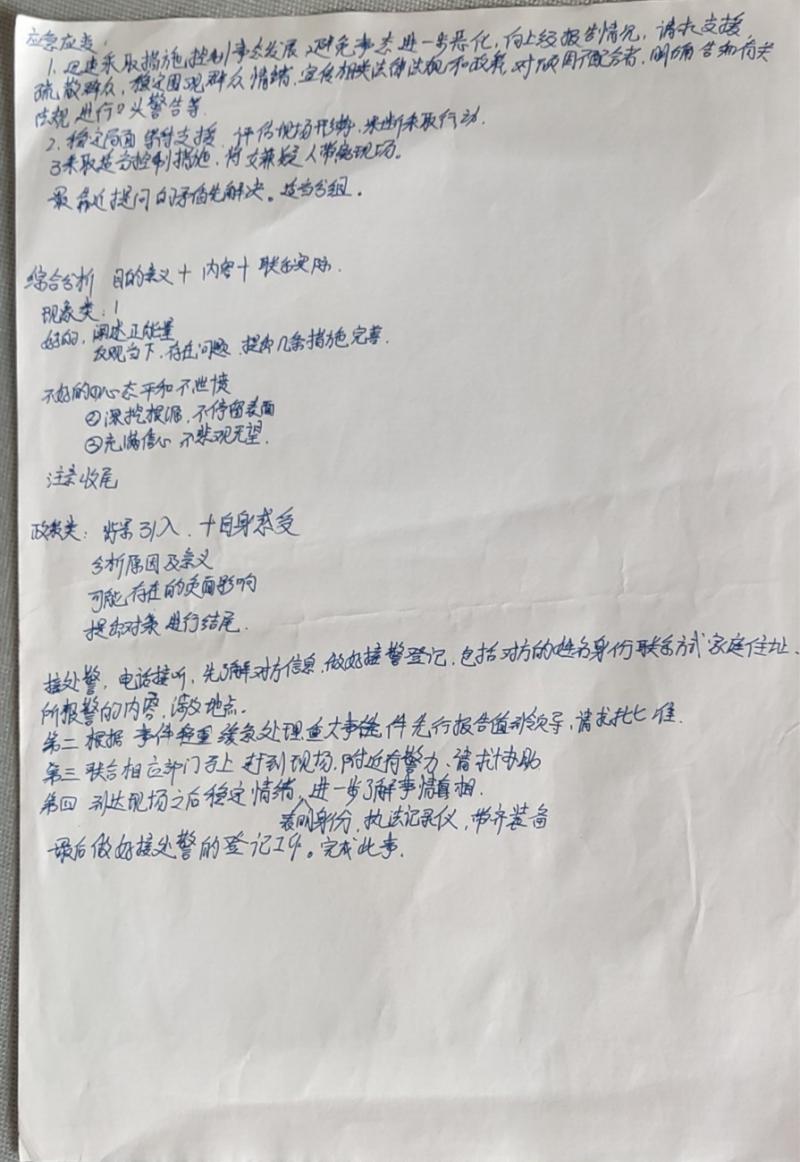 应急应变:
1. 迅速采取措施控制事态发展,避免事态进一步恶化,向上级报告情况,请求支援
疏散群众,稳定围观群众情绪,宣传相关法律法规和政策,对顽固不配合者,明确告知有关
法规 进行口头警告等
2. 稳定局面 等待支援 评估现场形势,果断采取行动.
3采取适当控制措施,将 嫌疑人带离现场。
最靠近提问的矛盾先解决。适当分组.
综合分析 目的意义+内容+联系实际.
现象类:1
好的,阐述正能量
反观当下,存在问题,提出几条措施完善.
不好的①心态平和不泄愤
②深挖根源,不停留表面
③充满信心 不悲观无望.
注意收尾
政策类:背景引入.+自身感受
分析原因及意义
可能存在的负面影响
提出对策 进行结尾.
接处警,电话接听,先了解对方信息,做好接警登记,包括对方的姓名身份联系方式 家庭住址.
所报警的内容,涉及地点.
第二 根据 事件轻重缓急处理 重大事件先行报告值班领导,请求批准.
第三 联合相应部门马上赶到现场.附近有警力,请求协助
第四 到达现场之后稳定情绪,进一步了解事情真相.
表明身份,执法记录仪,带齐装备
最后做好接处警的登记工作。完成此事.